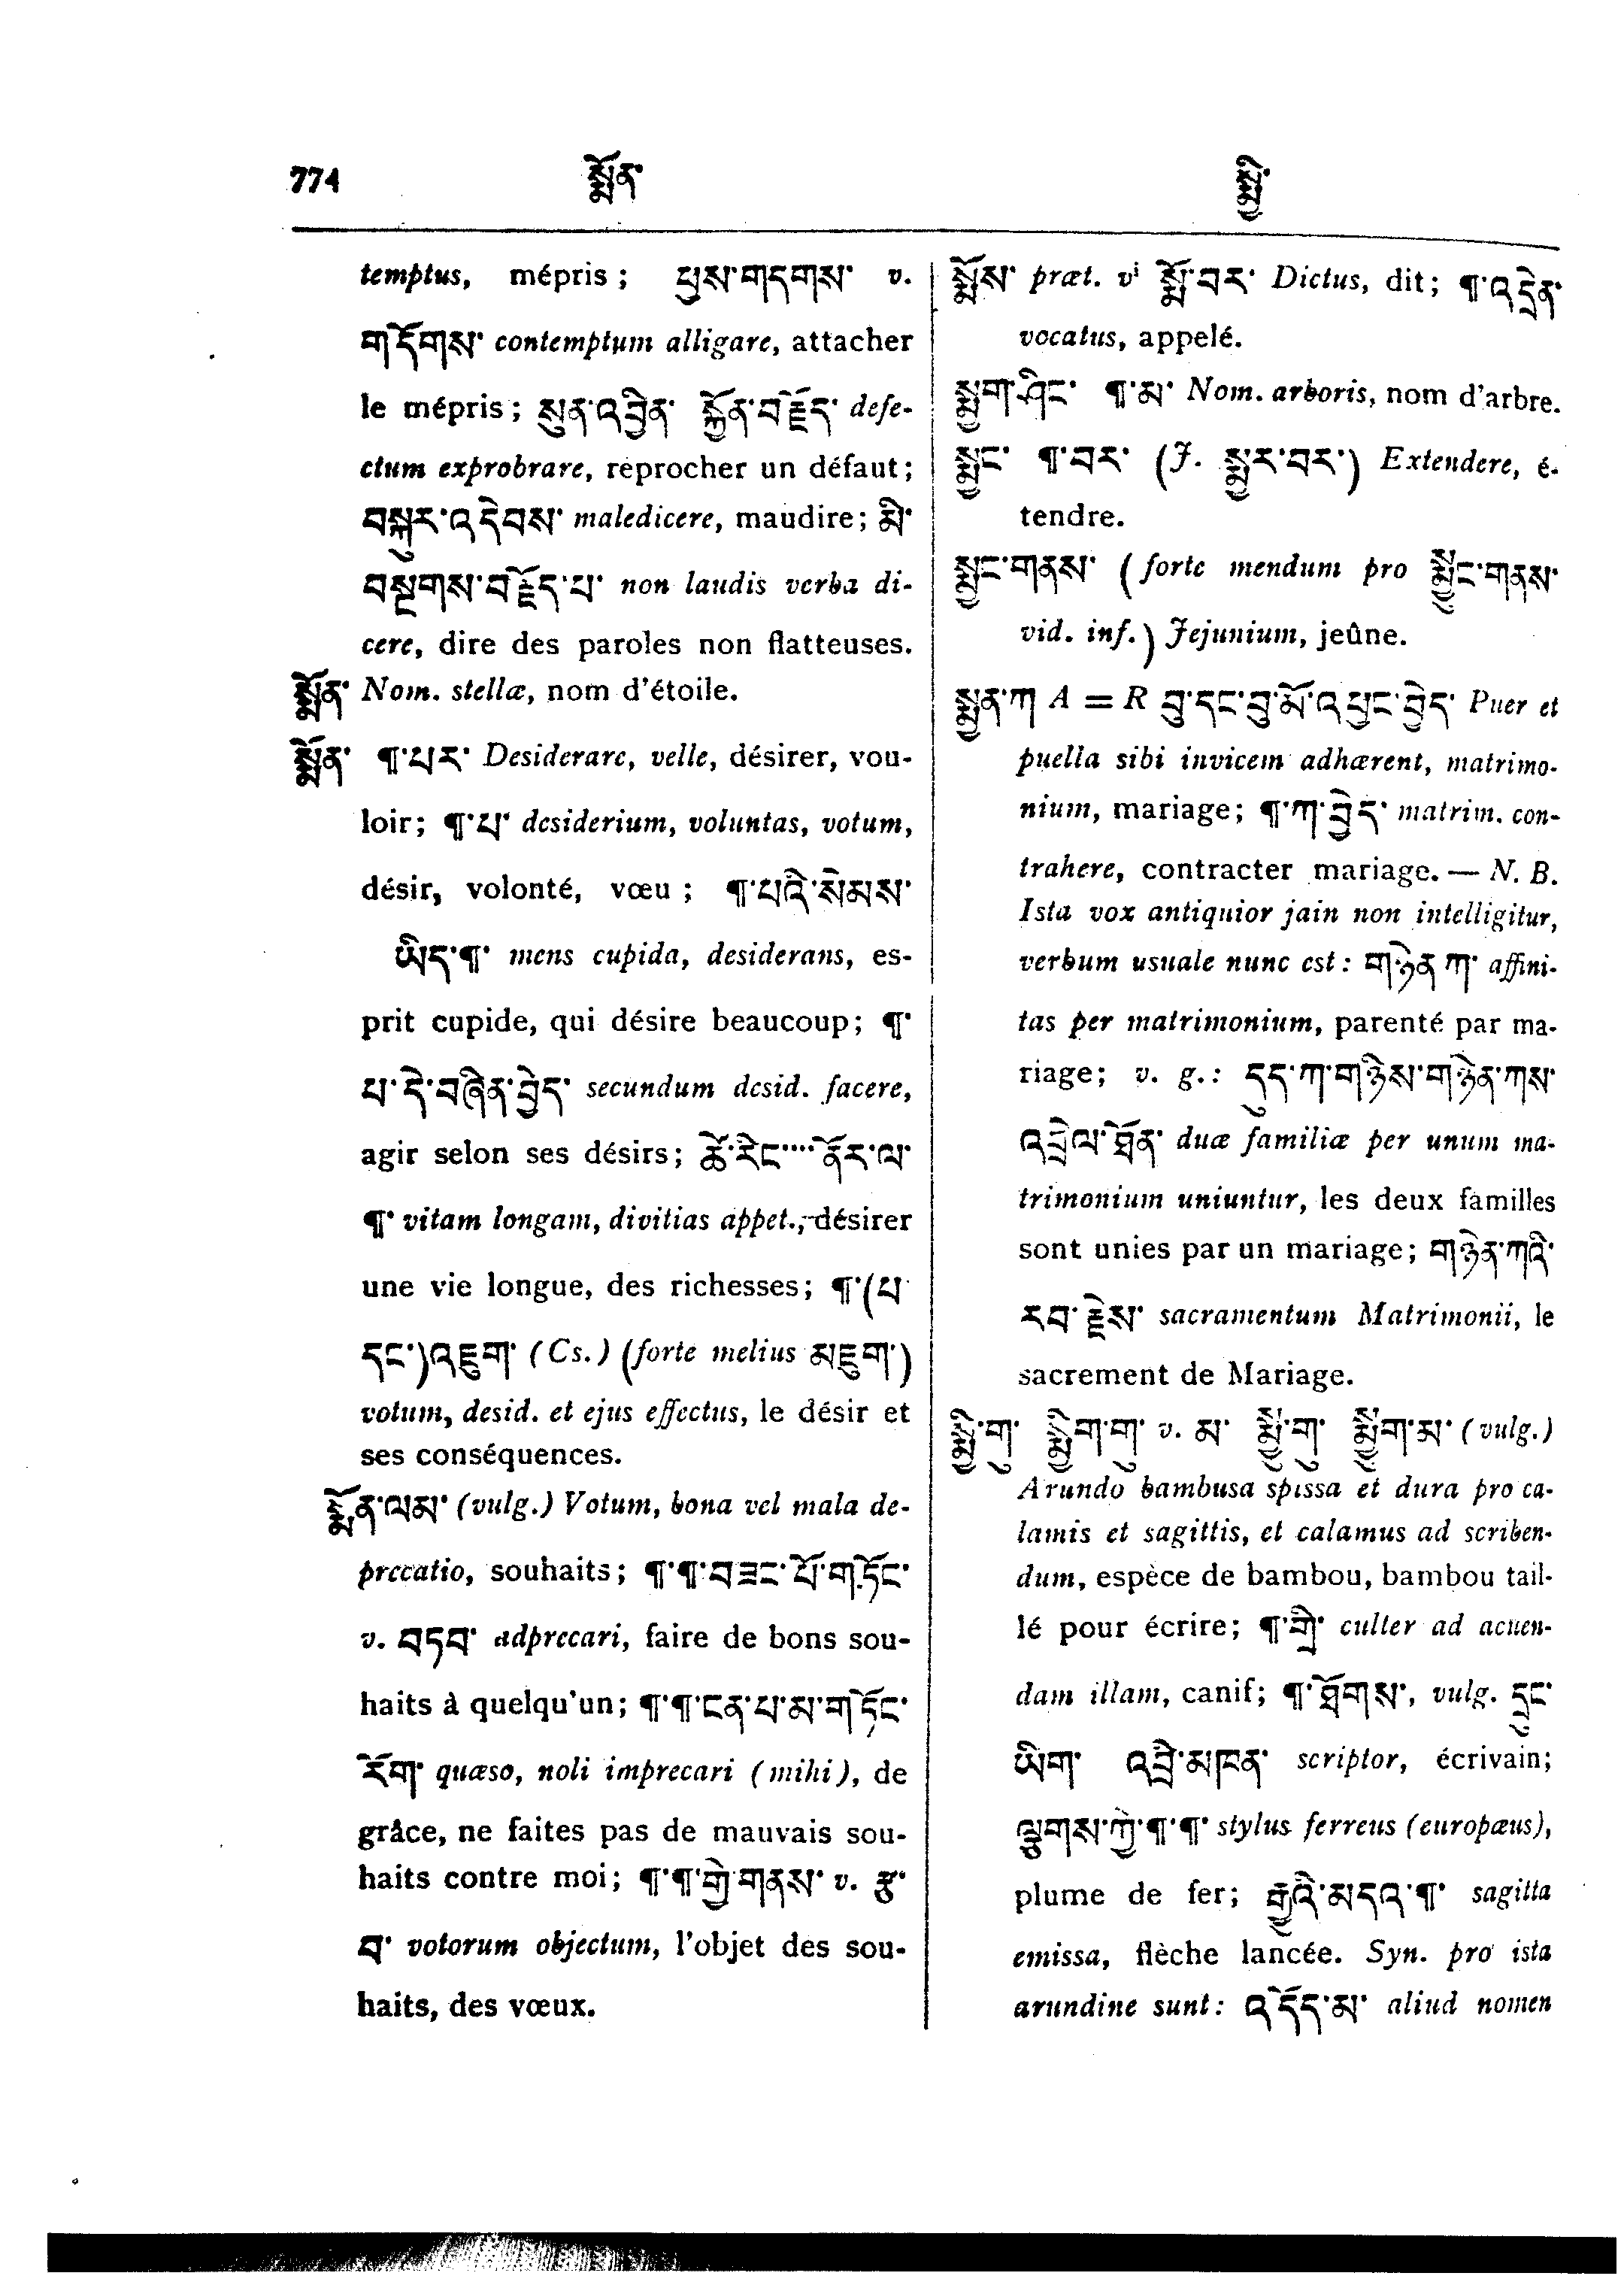 774 སྨོན་ སྨྱི་
temptus, mépris; ཕུས་གདགས་ v.
གདོགས་ contemptum alligare, attacher
le mépris; སུན་འབྱིན་ སྐྱོན་བརྗོད་ defe-
ctum exprobrare, reprocher un défaut;
བསྐུར་འདེབས་ maledicere, maudire; མི་
བསྔགས་བརྗོད་པ་ non laudis verba di-
cere, dire des paroles non flatteuses.
སྨོན་ Nom. stellæ, nom d'étoile.
སྨོན་ ¶་པར་ Desiderare, velle, désirer, vou-
loir; ¶་པ་ desiderium, voluntas, votum,
désir, volonté, vœu; ¶་པའི་སེམས་
ཡིད་¶་ mens cupida, desiderans, es-
prit cupide, qui désire beaucoup; ¶་
པ་དེ་བཞིན་བྱེད་ secundum desid. facere,
agir selon ses désirs; ཚེ་རིང་.... ནོར་ལ་
¶་ vitam longam, divitias appet., désirer
une vie longue, des richesses; ¶་(པ་
དང་)འཇུག་ (Cs.) (forte melius མཇུག་)
votum, desid. et ejus effectus, le désir et
ses conséquences.
སྨོན་ལམ་ (vulg.) Votum, bona vel mala de-
precatio, souhaits; ¶་¶་བཟང་པོ་གཏོང་
v. བཏབ་ adprecari, faire de bons sou-
haits à quelqu'un; ¶་¶་ངན་པ་མ་གཏོང་
རོག་ quæso, noli imprecari (mihi), de
grâce, ne faites pas de mauvais sou-
haits contre moi; ¶་¶་གྱེ་གནས་ v. རྩ་
བ་ votorum objectum, l'objet des sou-
haits, des vœux.
སྨོས་ præt. vⁱ སྨོ་བར་ Dictus, dit; ¶་འདྲེན་
vocatus, appelé.
སྨྱག་ཤིང་ ¶་མ་ Nom. arboris, nom d'arbre.
སྨྱང་ ¶་བར་ (J. སྨྱར་བར་) Extendere, é-
tendre.
སྨྱང་གནས་ (forte mendum pro སྨྱུང་གནས་
vid. inf.) Jejunium, jeûne.
སྨྱན་ཀ A = R བུ་དང་བུ་མོ་འཕྱང་བྱེད་ Puer et
puella sibi invicem adhærent, matrimo-
nium, mariage; ¶་ཀ་བྱེད་ matrim. con-
trahere, contracter mariage. — N. B.
Ista vox antiquior jain non intelligitur,
verbum usuale nunc est: གཉེན་ཀ་ affini-
tas per matrimonium, parenté par ma-
riage; v. g.: དུད་ཀ་གཉིས་གཉེན་ཀས་
འབྲེལ་ཐོན་ duæ familiæ per unum ma-
trimonium uniuntur, les deux familles
sont unies par un mariage; གཉེན་ཀའི་
རབ་རྗེས་ sacramentum Matrimonii, le
sacrement de Mariage.
སྨྱི་གུ་ སྨྱིག་གུ་ v. མ་ སྨྱུ་གུ་ སྨྱུག་མ་ (vulg.)
Arundo bambusa spissa et dura pro ca-
lamis et sagittis, et calamus ad scriben-
dum, espèce de bambou, bambou tail-
lé pour écrire; ¶་གྲི་ culter ad acuen-
dam illam, canif; ¶་ཐོགས་, vulg. དྲུང་
ཡིག་ འབྲི་མཁན་ scriptor, écrivain;
ལྕགས་ཀྱེ་¶་¶་ stylus ferreus (europæus),
plume de fer; རྒྱུའི་མདའ་¶་ sagitta
emissa, flèche lancée. Syn. pro ista
arundine sunt: འདོད་མ་ aliud nomen